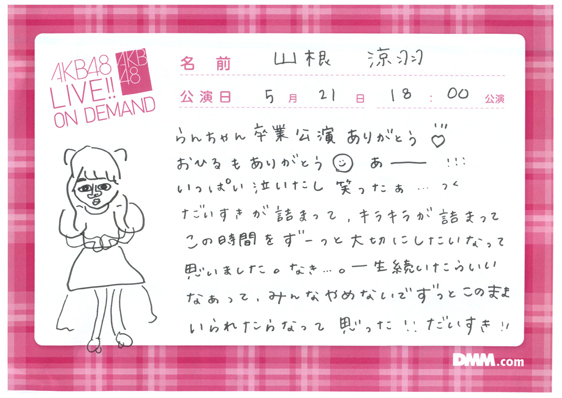 AKB48
LIVE!!
ON DEMAND
AKB
48
名前 山根 涼羽
公演日 5月 21日 18:00 公演
らんちゃん卒業公演ありがとう
おひるもありがとう あー !!!
いっぱい泣いたし笑ったぁ…っく
だいすきが詰まって、キラキラが詰まって
この時間をずーっと大切にしたいなって
思いました。なき…。一生続いたらいい
なぁって、みんなやめないでずっとこのまま
いられたらなって思った!! だいすき!!
DMM.com